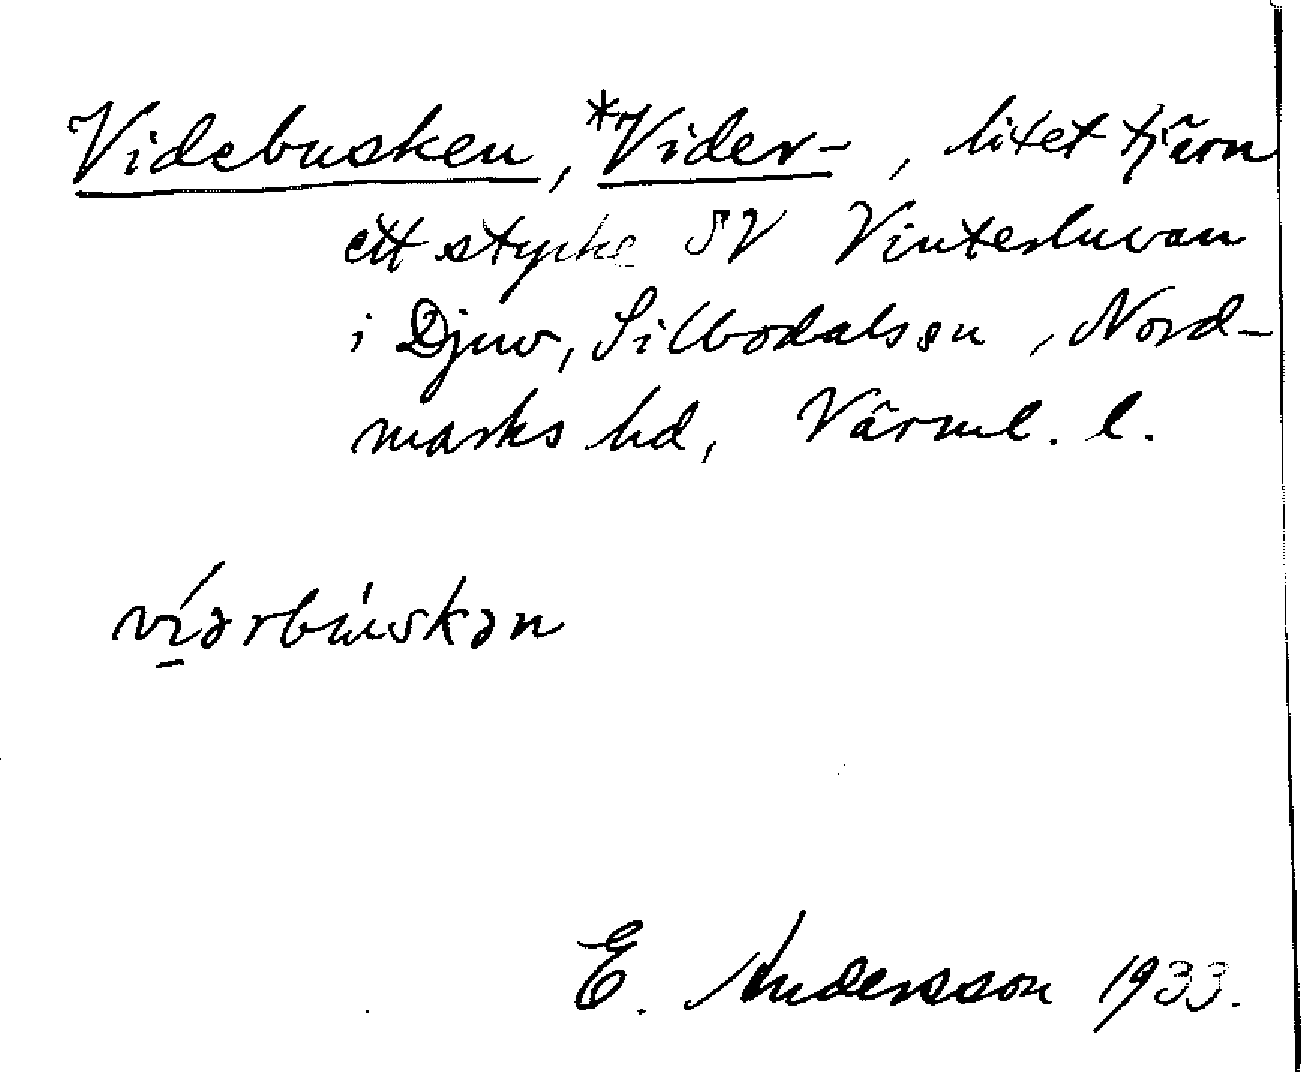 Videbusken, *Vider-, litet tjärn
ett stycke SV Vinterluvan
i Djuv, Silbodals sn, Nord-
marks hd, Värml. l.
víərbùskən
E. Andersson 1933.